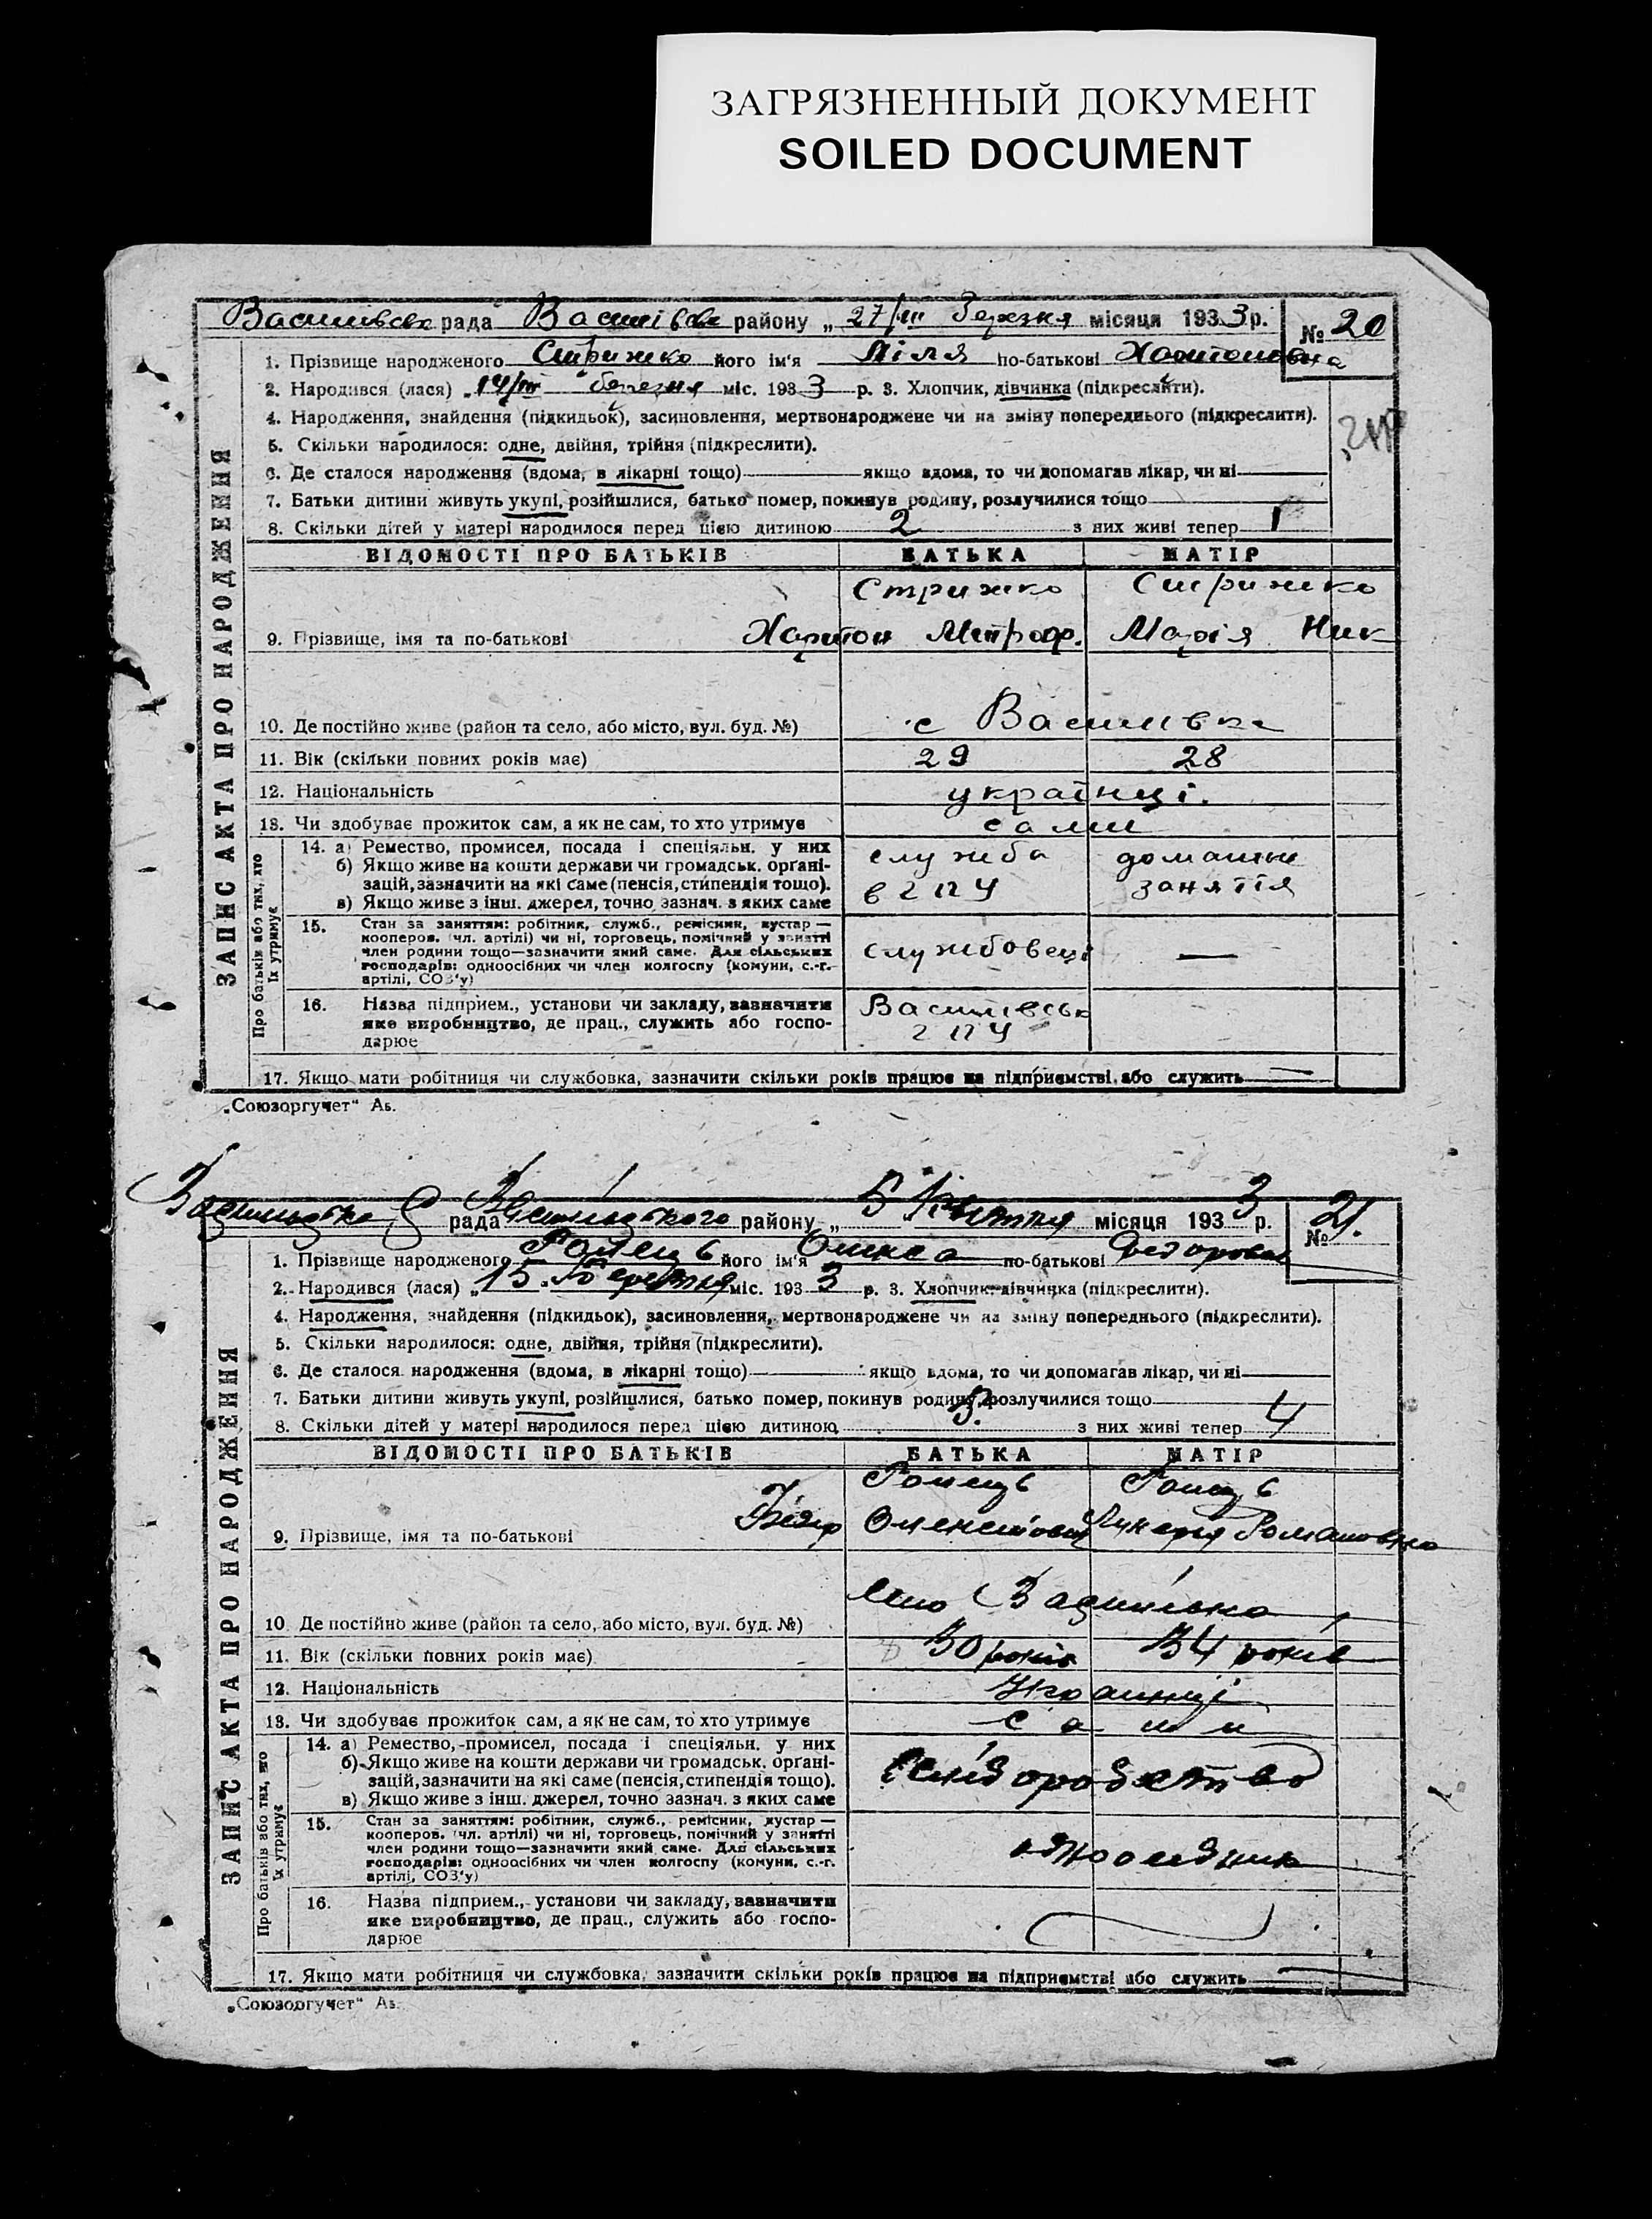 ЗАГРЯЗНЕННЫЙ ДОКУМЕНТ
SOILED DOCUMENT
рада району „ 27/III Березня місяця 1933 р. № 20
1. Прізвище народженого Стрижко його ім'я Ліля по-батькові Харитоновна
2. Народився (лася) „14/III березня міс. 1933 р. 3. Хлопчик, дівчинка (підкреслити).
4. Народження, знайдення (підкидьок), засиновлення, мертвонароджене чи на зміну попереднього (підкреслити).
5. Скільки народилося: одне, двійня, трійня (підкреслити).
6. Де сталося народження (вдома, в лікарні тощо) якщо вдома, то чи допомагав лікар, чи ні
7. Батьки дитини живуть укупі, розійшлися, батько помер, покинув родину, розлучилися тощо
8. Скільки дітей у матері народилося перед цією дитиною 2 з них живі тепер 1
ЗАПИС АКТА ПРО НАРОДЖЕННЯ
ВІДОМОСТІ ПРО БАТЬКІВ БАТЬКА МАТІР
Стрижко Стрижко
9. Прізвище, імя та по-батькові Харитон Митроф. Марія Ник
10. Де постійно живе (район та село, або місто, вул. буд. №) с Василівка
11. Вік (скільки повних років має) 29 28
12. Національність українці.
13. Чи здобуває прожиток сам, а як не сам, то хто утримує сами
Про батьків або тих, хто їх утримує
14. а) Ремество, промисел, посада і спеціяльн. у них служба домашне
б) Якщо живе на кошти держави чи громадськ. органі-
зацій, зазначити на які саме (пенсія, стипендія тощо). в ГПУ заняття
в) Якщо живе з інш. джерел, точно зазнач. з яких саме
15. Стан за заняттям: робітник, служб., ремісник, кустар—
кооперов. (чл. артілі) чи ні, торговець, помічний у занятті
член родини тощо—зазначити який саме. Для сільських службовець —
господарів: одноосібних чи член колгоспу (комуни, с.-г.
артілі, СОЗ'у)
16. Назва підприєм., установи чи закладу, зазначити Василівськ
яке виробництво, де прац., служить або госпо- ГПУ
дарює
17. Якщо мати робітниця чи службовка, зазначити скільки років працює на підприємстві або служить —
„Союзоргучет“
рада Василівського району „ 5 Квітня місяця 1933 р. № 21.
1. Прізвище народженого його ім'я Олекса по-батькові
2. Народився (лася) „15 Березня міс. 1933 р. 3. Хлопчик, дівчинка (підкреслити).
4. Народження, знайдення (підкидьок), засиновлення, мертвонароджене чи на зміну попереднього (підкреслити).
5. Скільки народилося: одне, двійня, трійня (підкреслити).
6. Де сталося народження (вдома, в лікарні тощо) якщо вдома, то чи допомагав лікар, чи ні
7. Батьки дитини живуть укупі, розійшлися, батько помер, покинув родину, розлучилися тощо
8. Скільки дітей у матері народилося перед цією дитиною 3. з них живі тепер 4
ЗАПИС АКТА ПРО НАРОДЖЕННЯ
ВІДОМОСТІ ПРО БАТЬКІВ БАТЬКА МАТІР
9. Прізвище, імя та по-батькові Романовна
10. Де постійно живе (район та село, або місто, вул. буд. №) село Василівка
11. Вік (скільки повних років має) 30 років 34 років
12. Національність Українці
13. Чи здобуває прожиток сам, а як не сам, то хто утримує сами
Про батьків або тих, хто їх утримує
14. а) Ремество, промисел, посада і спеціяльн. у них
б) Якщо живе на кошти держави чи громадськ. органі-
зацій, зазначити на які саме (пенсія, стипендія тощо).
в) Якщо живе з інш. джерел, точно зазнач. з яких саме
15. Стан за заняттям: робітник, служб., ремісник, кустар—
кооперов. (чл. артілі) чи ні, торговець, помічний у занятті
член родини тощо—зазначити який саме. Для сільських
господарів: одноосібних чи член колгоспу (комуни, с.-г.
артілі, СОЗ'у)
16. Назва підприєм., установи чи закладу, зазначити
яке виробництво, де прац., служить або госпо-
дарює
17. Якщо мати робітниця чи службовка, зазначити скільки років працює на підприємстві або служить —
„Союзоргучет“